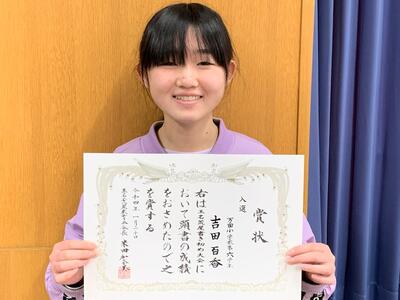 賞状
入選
万田小学校第六学年
吉田百香
右は玉名荒尾書き初め大会に
おいて頭書の成績
をおさめたので之
を賞する
令和四年一月